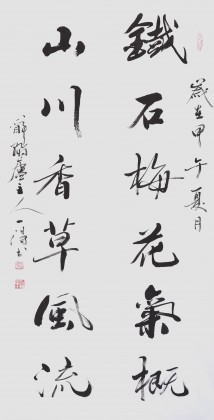 歲在甲午夏月
鐵石梅花氣概
山川香草風流
主人一清書